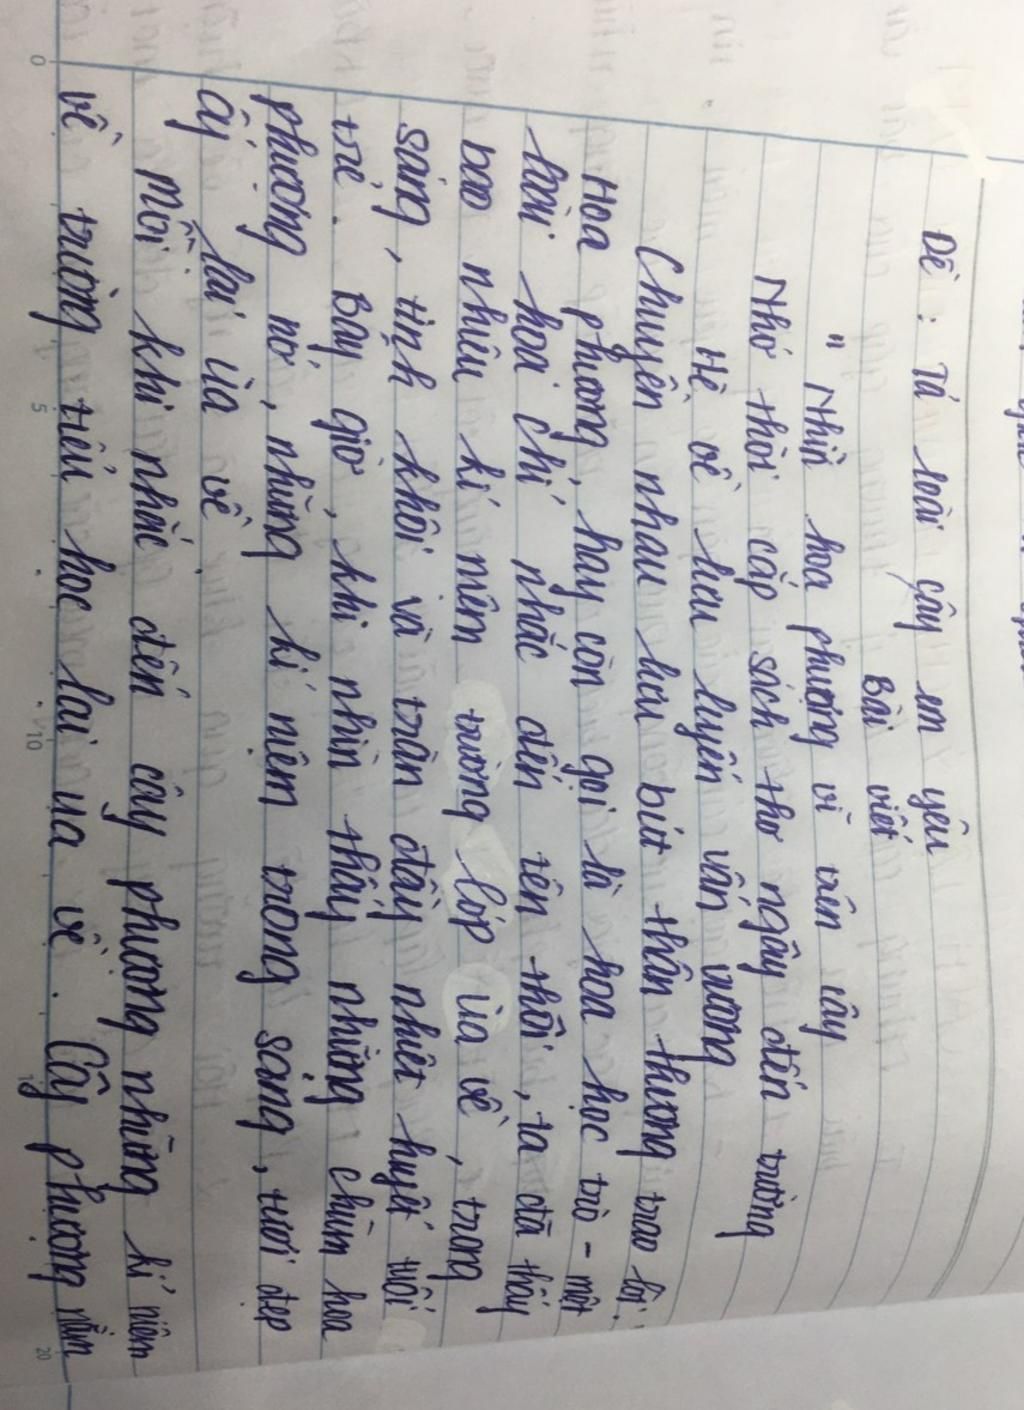 Đề : Tả loài cây em yêu
Bài viết
" Nhìn hoa phượng vĩ trên cây
Nhớ thời cắp sách thơ ngây đến trường
Hè về lưu luyến vấn vương
Chuyện nhau lưu bút thân thương trao lời."
Hoa phượng, hay còn gọi là hoa học trò - một
loài hoa chỉ nhắc đến tên thôi, ta đã thấy
bao nhiêu kỉ niệm trường lớp ùa về, trong
sáng, tinh khôi và tràn đầy nhiệt huyết tuổi
trẻ. Bây giờ, khi nhìn thấy những chùm hoa
phượng nở, những kỉ niệm trong sáng, tươi đẹp
ấy lại ùa về.
Mỗi khi nhắc đến cây phượng những kỉ niệm
về trường tiểu học lại ùa về. Cây phượng nằm